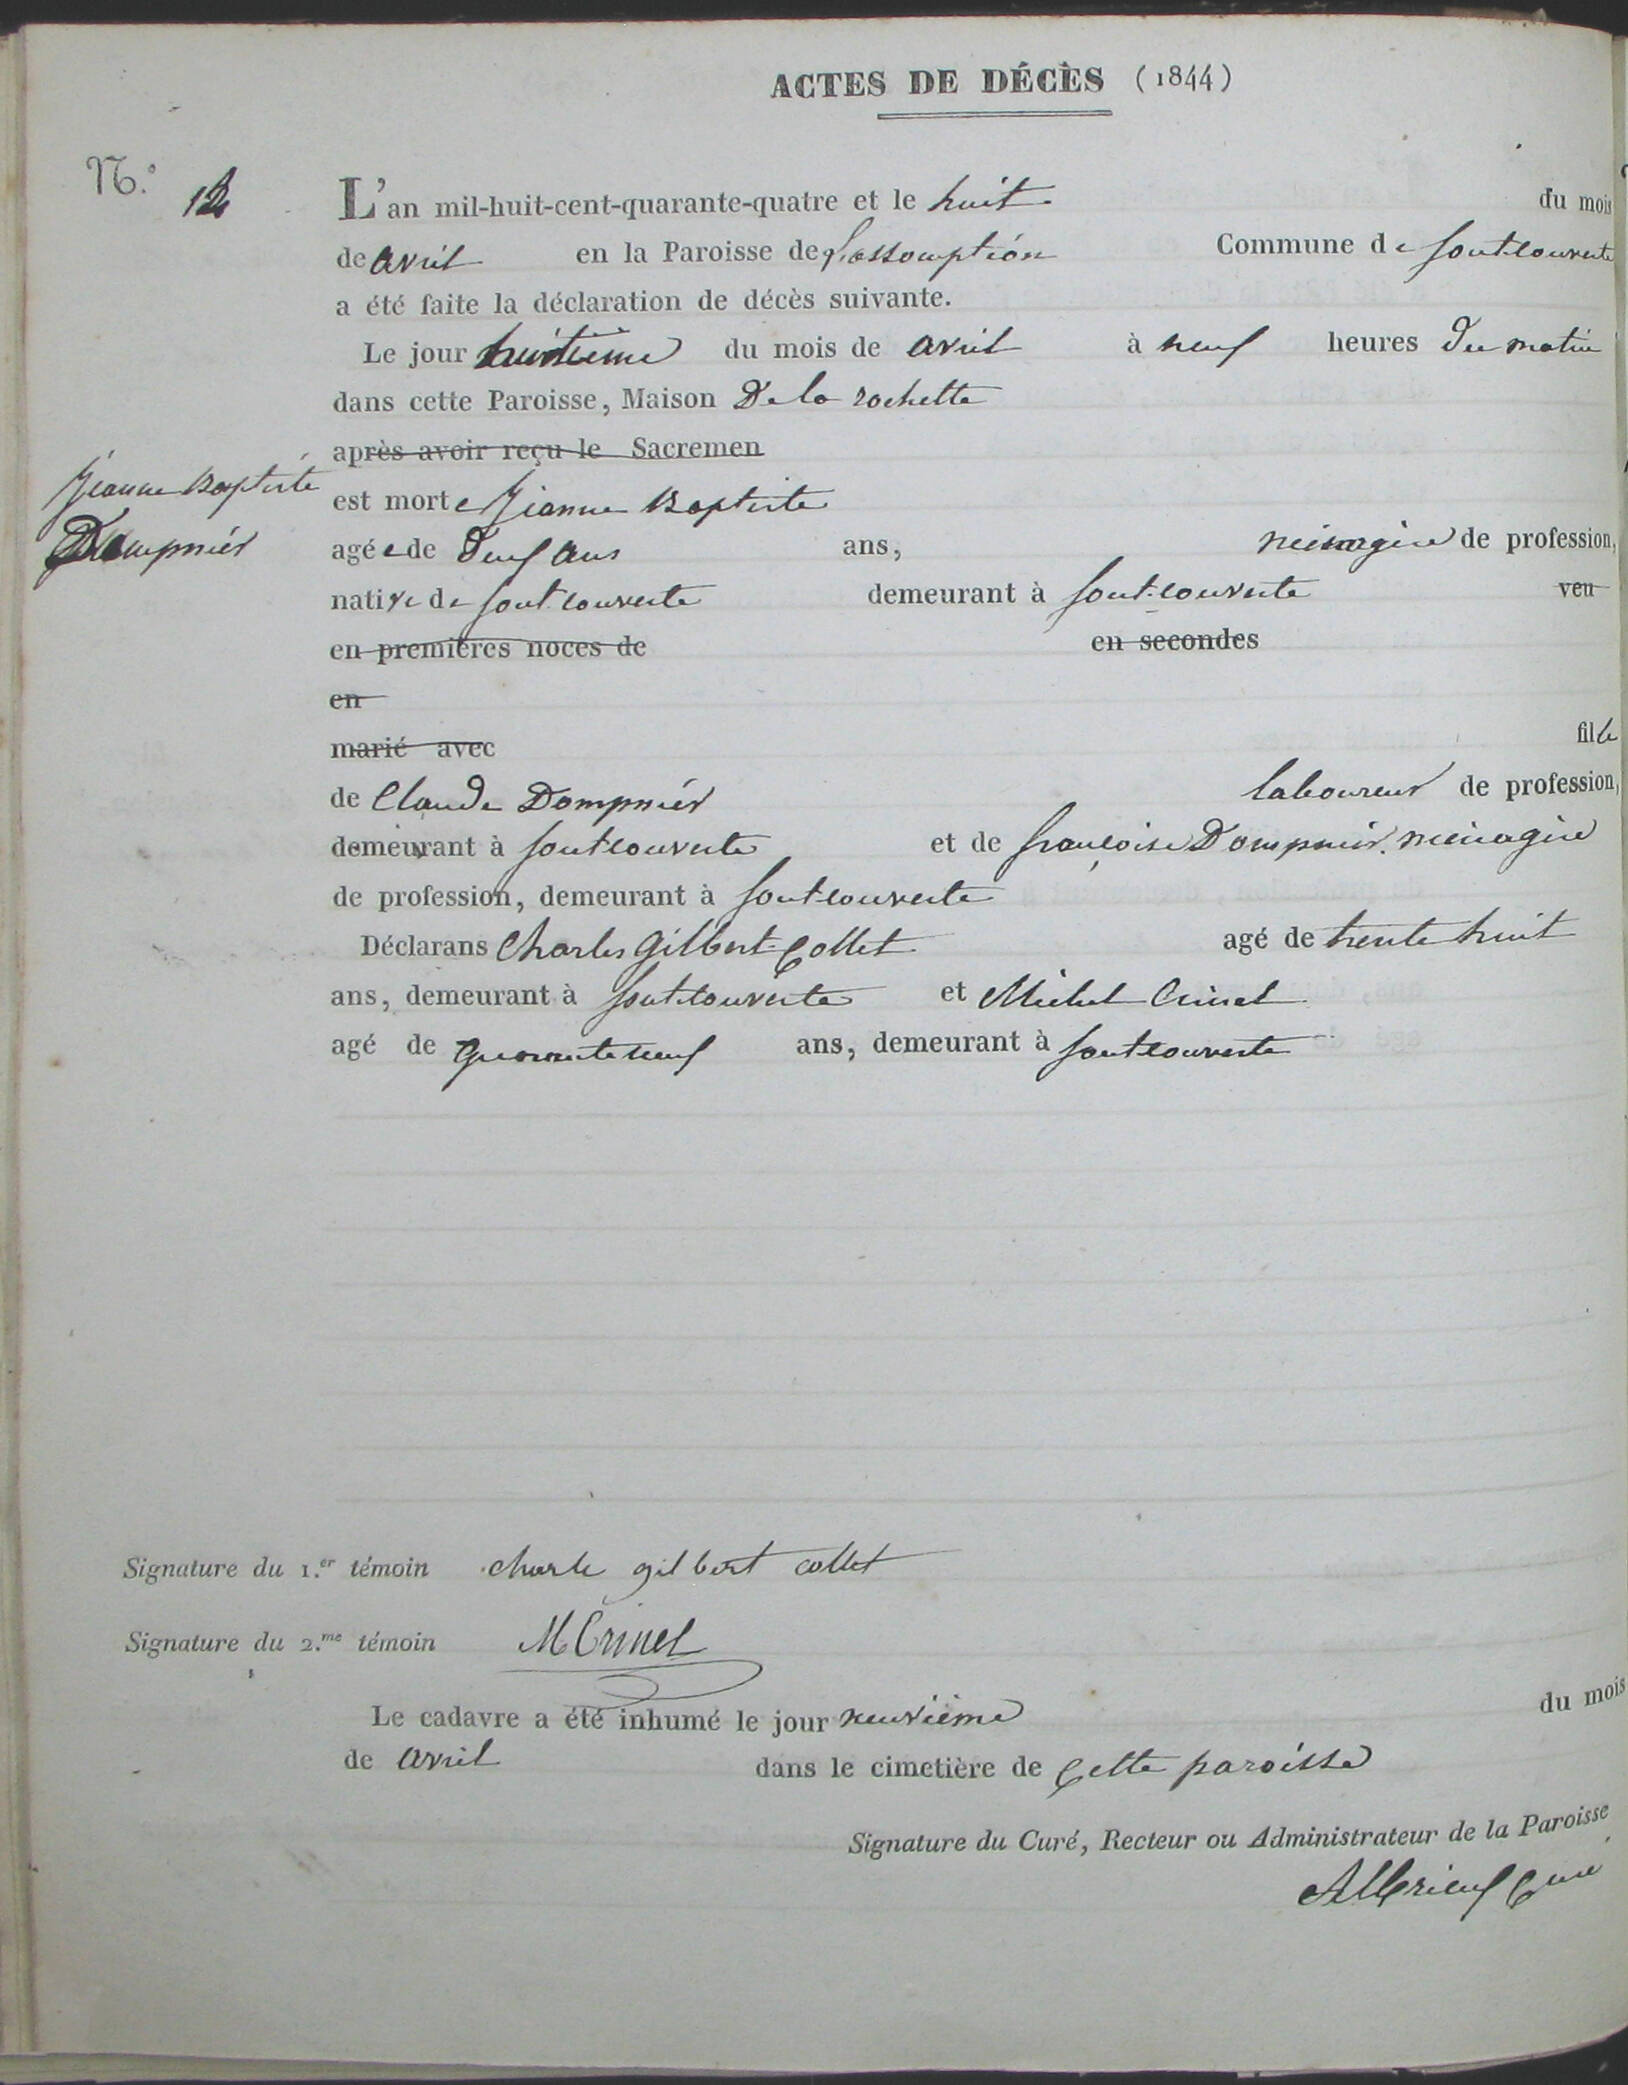 ACTES DE DÉCÈS (1844)
N.º 12
L'an mil-huit-cent-quarante-quatre et le huit du mois
de avril en la Paroisse de L'assomption Commune de fontcouverte
a été faite la déclaration de décès suivante.
Le jour huitième du mois de avril à neuf heures Du matin
dans cette Paroisse, Maison De la rochette
après avoir reçu le Sacremen
Jeanne Baptiste
est morte Jeanne Baptiste
Dompnier
agée de Deux ans ans, ménagère de profession,
native de fontcouverte demeurant à fontcouverte veu
en premières noces de en secondes
en
marié avec fille
de Claude Dompnier laboureur de profession,
demeurant à fontcouverte et de françoise Dompnier ménagère
de profession, demeurant à fontcouverte
Déclarans Charles Gilbert-Collet agé de trente huit
ans, demeurant à fontcouverte et Michel Crinel
agé de quarante neuf ans, demeurant à fontcouverte
Signature du 1.er témoin charle gilbert collet
Signature du 2.me témoin M Crinel
Le cadavre a été inhumé le jour neuvième du mois
de avril dans le cimetière de Cette paroisse
Signature du Curé, Recteur ou Administrateur de la Paroisse
Curé